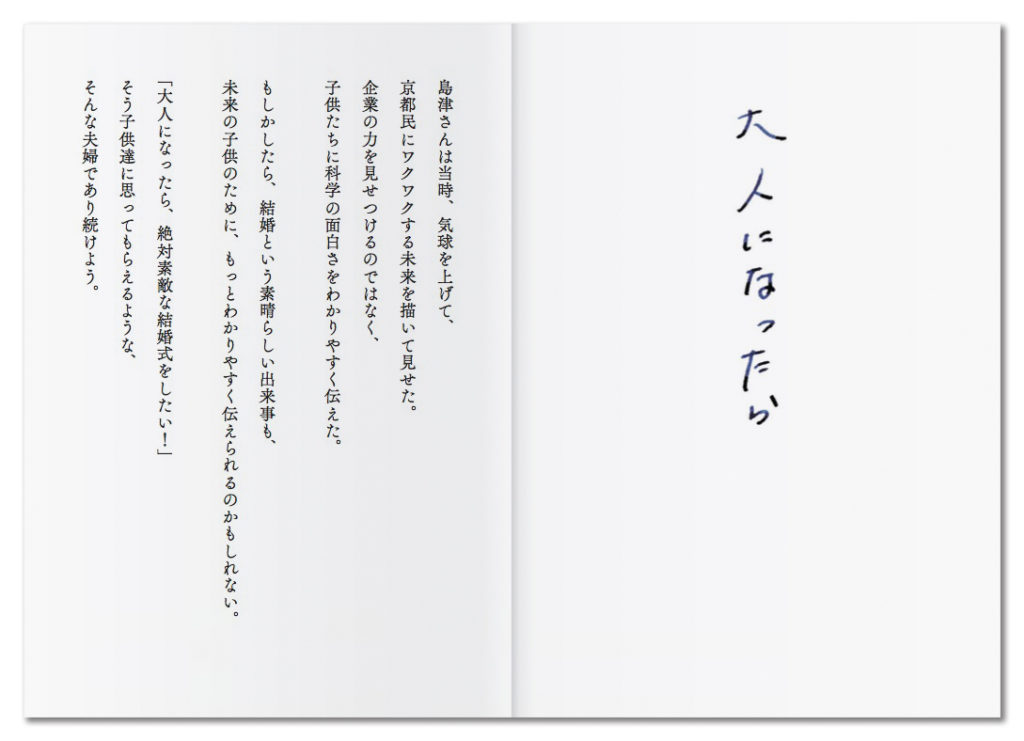 大人になったら
島津さんは当時、気球を上げて、
京都民にワクワクする未来を描いて見せた。
企業の力を見せつけるのではなく、
子供たちに科学の面白さをわかりやすく伝えた。
もしかしたら、結婚という素晴らしい出来事も、
未来の子供のために、もっとわかりやすく伝えられるのかもしれない。
「大人になったら、絶対素敵な結婚式をしたい！」
そう子供達に思ってもらえるような、
そんな夫婦であり続けよう。